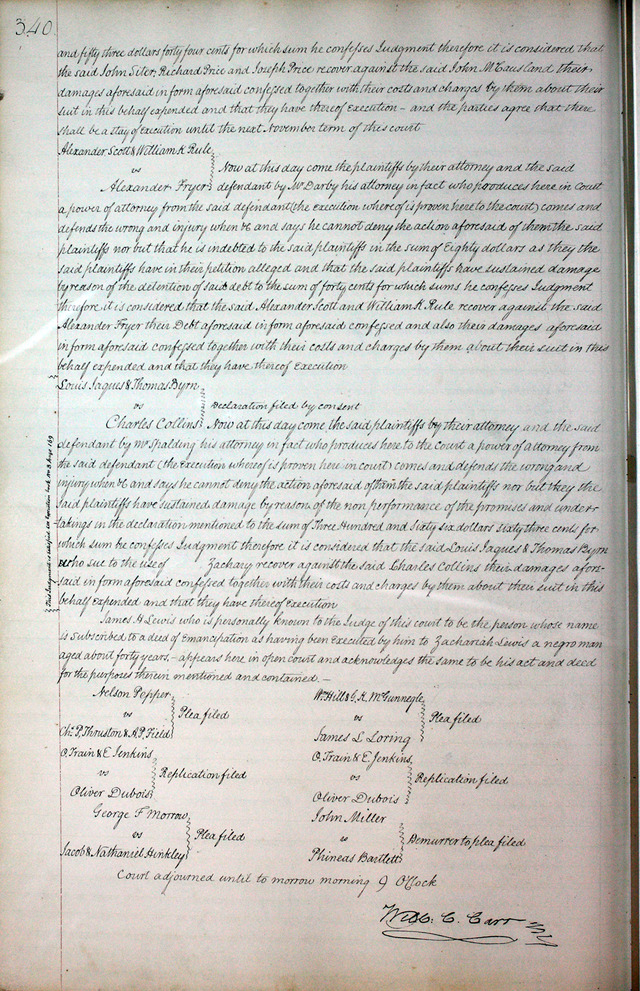 340
and fifty three dollars forty four cents for which sum he confesses Judgment therefore it is considered that
the said John Siter, Richard Price and Joseph Price recover against the said John McCausland their
damages aforesaid in form aforesaid confessed together with their costs and charges by them about their
suit in this behalf expended and that they have thereof execution – and the parties agree that there
shall be a stay of execution until the next November term of this court
Alexander Scott & William K Rule
vs Now at this day come the plaintiffs by their attorney and the said
Alexander Fryer defendant by Mr Darby his attorney in fact who produces here in Court
a power of attorney from the said defendant (the execution whereof is proven here to the court) comes and
defends the wrong and injury when &c and says he cannot deny the action aforesaid of them the said
plaintiffs nor but that he is indebted to the said plaintiffs in the sum of Eighty dollars as they the
said plaintiffs have in their petition alleged and that the said plaintiffs have sustained damage
by reason of the detention of said debt to the sum of forty cents for which sums he confesses Judgment
therefore it is considered that the said Alexander Scott and William K Rule recover against the said
Alexander Fryer their Debt aforesaid in form aforesaid confessed and also their damages aforesaid
in form aforesaid confessed together with their costs and charges by them about their suit in this
behalf expended and that they have thereof execution
Louis Jaques & Thomas Byrn
vs Declaration filed by consent
Charles Collins Now at this day come the said plaintiffs by their attorney and the said
defendant by Mr Spalding his attorney in fact who produces here to the Court a power of attorney from
the said defendant (the execution whereof is proven here in court) comes and defends the wrong and
injury when &c and says he cannot deny the action aforesaid of them the said plaintiffs nor but they the
said plaintiffs have sustained damage by reason of the non performance of the promises and under-
takings in the declaration mentioned to the sum of Three Hundred and Sixty six dollars sixty three cents for
which sum he confesses Judgment therefore it is considered that the said Louis Jaques & Thomas Byrn
who sue to the use of Zachary recover against the said Charles Collins their damages afore-
said in form aforesaid confessed together with their costs and charges by them about their suit in this
behalf expended and that they have thereof execution
This Judgment is satisfied
James H Lewis who is personally known to the Judge of this court to be the person whose name
is subscribed to a deed of Emancipation as having been executed by him to Zachariah Lewis a negro man
aged about forty years, – appears here in open court and acknowledges the same to be his act and deed
for the purposes therein mentioned and contained. –
Nelson Pepper
vs Plea filed
Chs P. Thruston & A. P. Field
Wm Hill & G. K. McGunnegle
vs Plea filed
James L Loring
O. Train & E Jenkins
vs Replication filed
Oliver Dubois
O. Train & E. Jenkins
vs Replication filed
Oliver Dubois
George F Morrow
vs Plea filed
Jacob & Nathaniel Hinkley
John Miller
vs Demurrer to plea filed
Phineas Bartlett
Court adjourned until to morrow morning 9 O'Clock
Wm C. Carr